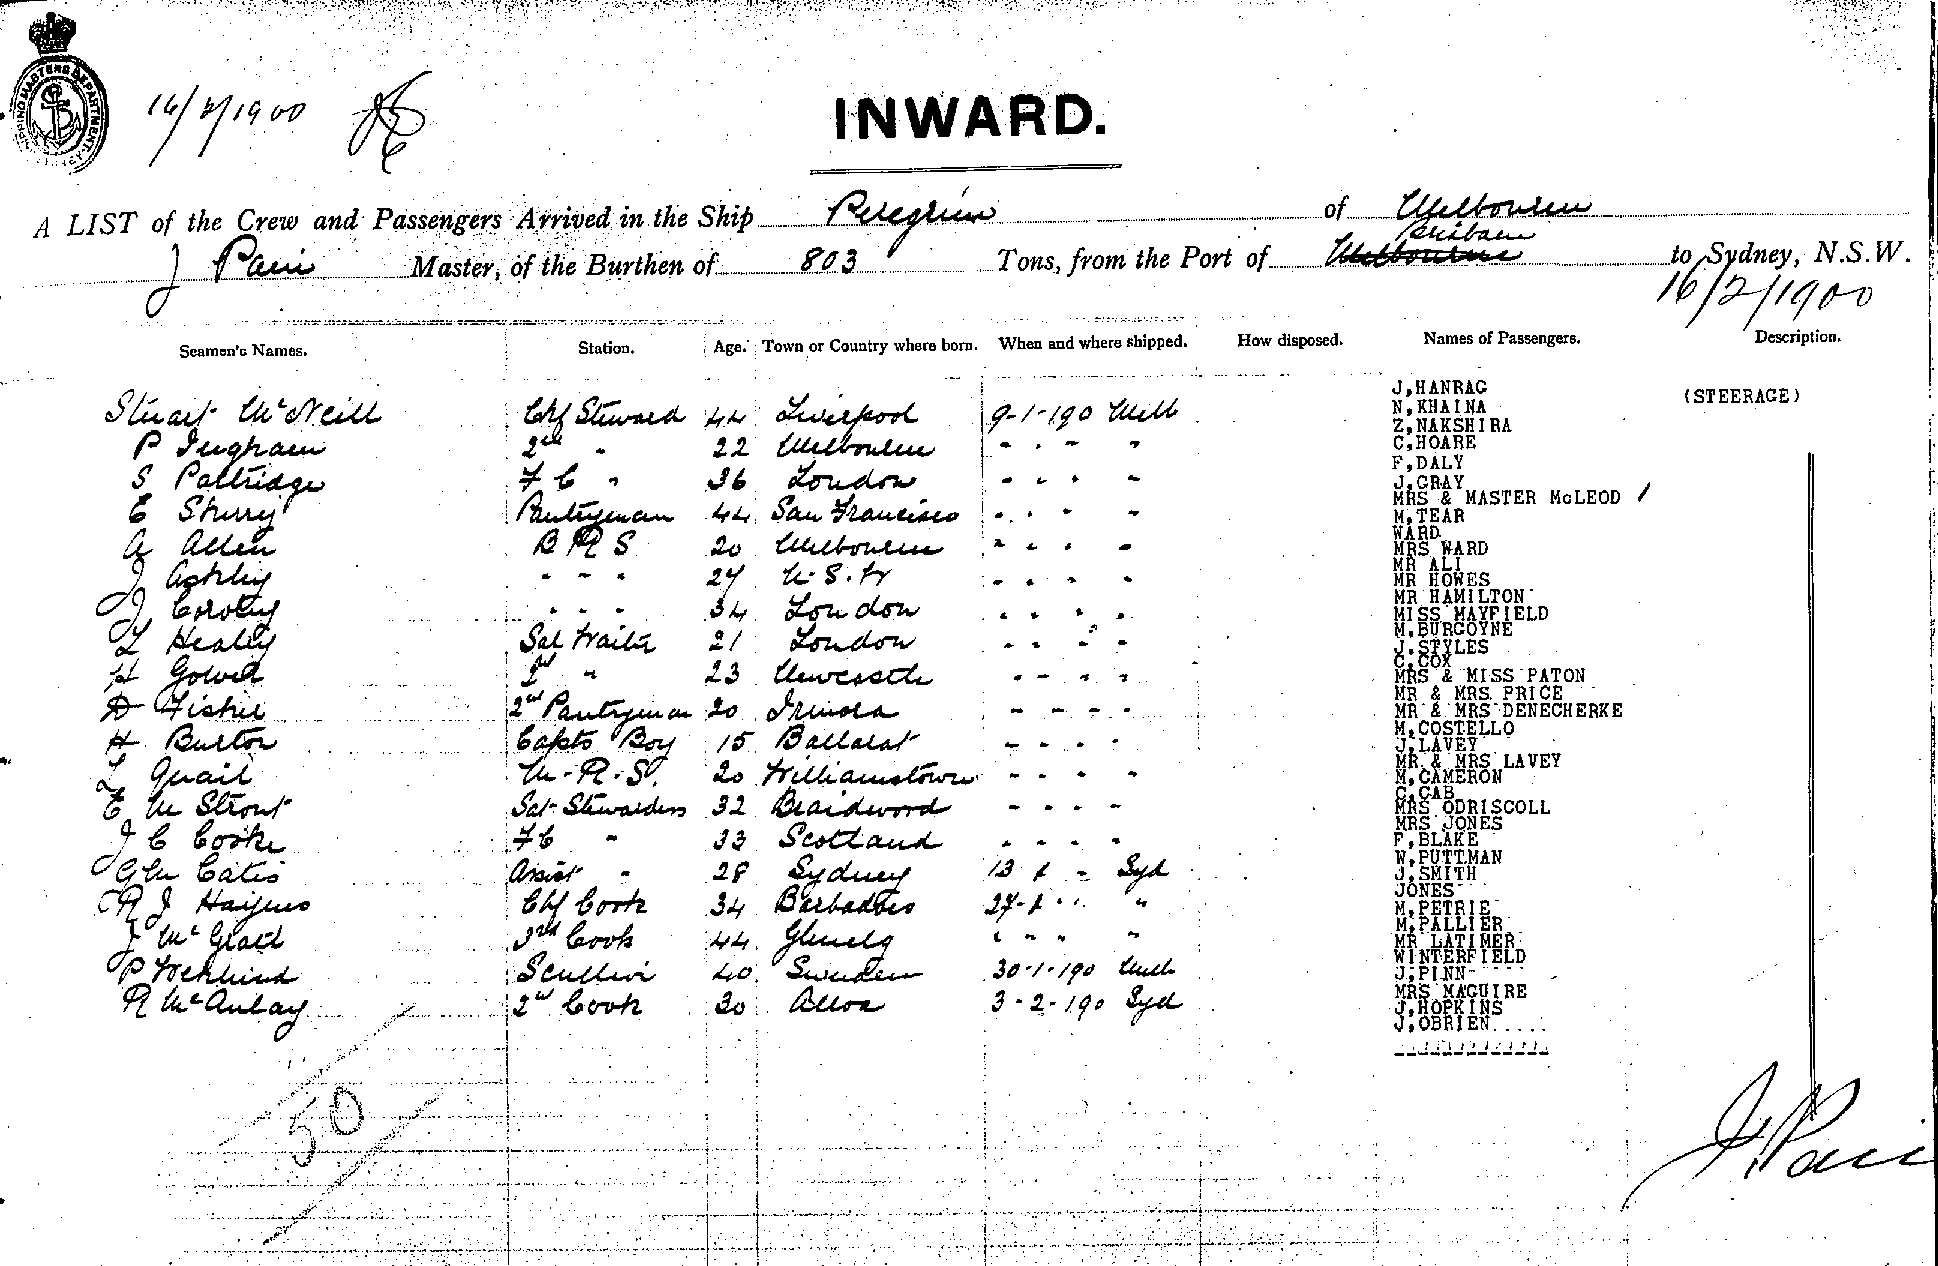 16/2/1900
INWARD.
A LIST of the Crew and Passengers Arrived in the Ship Peregrine of Melbourne
J Pain Master, of the Burthen of 803 Tons, from the Port of Melbourne Brisbane to Sydney, N.S.W.
16/2/1900
Seamen's Names. Station. Age. Town or Country where born. When and where shipped. How disposed. Names of Passengers. Description.
Stuart McNeill Chf Steward 44 Liverpool 9-1-190 Melb
P Ingham 2nd " 22 Melbourne " " " "
S Partridge F C " 36 London " " " "
E Sherry Pantryman 44 San Francisco " " " "
A Allen B R S 20 Melbourne " " " "
J Ashby " " " 27 N.S.W " " " "
J " " " 34 London " " " "
L Healey Sal Waiter 21 London " " " "
H 2d " 23 Newcastle " " " "
D Fisher 2nd Pantryman 20 " " " "
H Burton Capts Boy 15 Ballarat " " " "
L Quail M.R.S. 20 Williamstown " " " "
E M Strout Sal Stewardess 32 Braidwood " " " "
J C Cooke F C " 33 Scotland " " " "
Assist " 28 Sydney 13 1 " Syd
R J Haynes Chf Cook 34 Barbadoes 27-1 " "
J McGrath 3rd Cook 44 Glenelg " " " "
P Scullion 40 Sweden 30-1-190 Melb
R McAulay 2nd Cook 30 Alloa 3-2-190 Syd
50
J,HANRAG (STEERAGE)
N,KHAINA
Z,NAKSHIRA
C,HOARE
F,DALY
J,GRAY
MRS & MASTER McLEOD /
M,TEAR
WARD
MRS WARD
MR ALI
MR HOWES
MR HAMILTON
MISS MAYFIELD
M,BURGOYNE
J.STYLES
C,COX
MRS & MISS PATON
MR & MRS PRICE
MR & MRS DENECHERKE
M,COSTELLO
J,LAVEY
MR & MRS LAVEY
M,CAMERON
C,CAB
MRS ODRISCOLL
MRS JONES
F,BLAKE
W,PUTTMAN
J,SMITH
JONES
M,PETRIE
M,PALLIER
MR LATIMER
WINTERFIELD
J,PINN
MRS MAGUIRE
J,HOPKINS
J,OBRIEN.....
J Pain